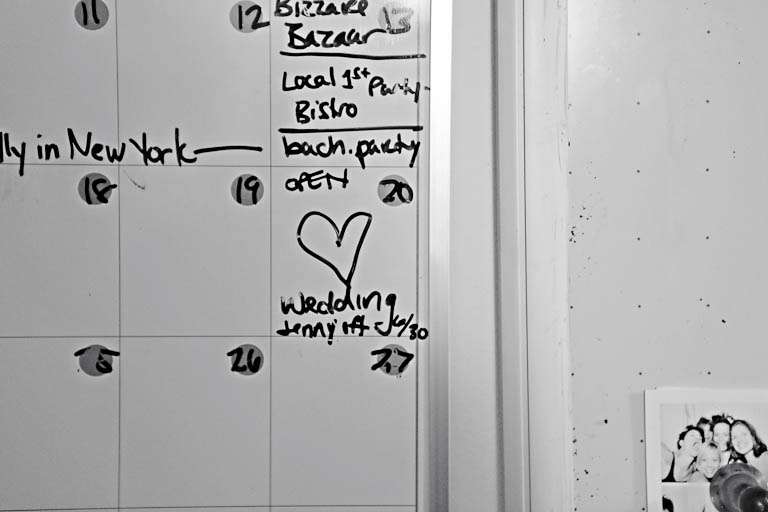 11
12
Bizzare 13
Bazaar
Local 1st Party
Bistro
lly in New York
bach. party
18
19
OPEN 20
Wedding
Jenny off 6/30
26
27